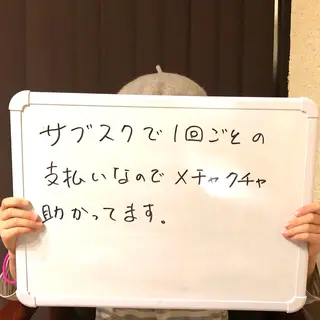 サブスクで1回ごとの
支払いなのでメチャクチャ
助かってます。